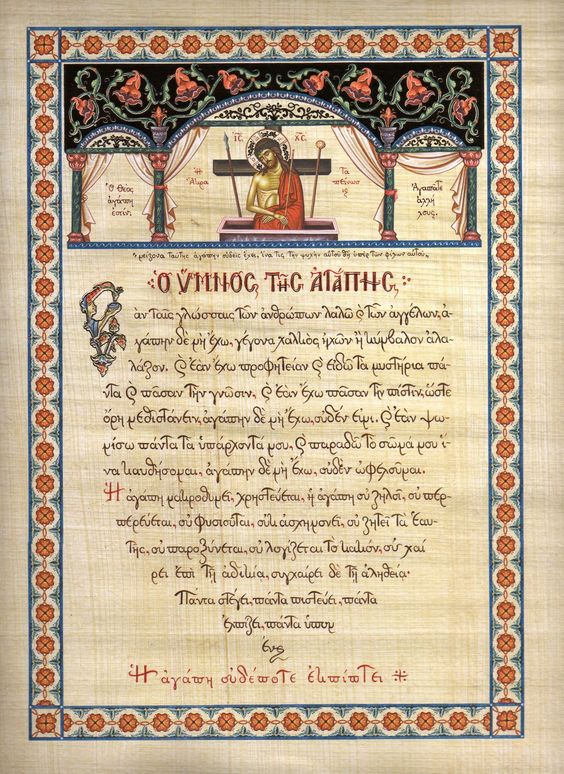 ΙC ΧC
Ὁ Θεὸς
ἀγάπη
ἐστίν.
Ἡ
Ἄκρα
Τα
πείνωσ
ις
Ἀγαπᾶτε
ἀλλή
λους.
μείζονα ταύτης ἀγάπην οὐδεὶς ἔχει, ἵνα τις τὴν ψυχὴν αὐτοῦ θῇ ὑπὲρ τῶν φίλων αὐτοῦ.
Ὁ ὝΜΝΟΣ ΤΗΣ ἈΓΆΠΗΣ
Ἐὰν ταῖς γλώσσαις τῶν ἀνθρώπων λαλῶ ϗ τῶν ἀγγέλων, ἀ
γάπην δὲ μὴ ἔχω, γέγονα χαλκὸς ἠχῶν ἢ κύμβαλον ἀλα
λάζον. ϗ ἐὰν ἔχω προφητείαν ϗ εἰδῶ τὰ μυστήρια πά
ντα ϗ πᾶσαν τὴν γνῶσιν, ϗ ἐὰν ἔχω πᾶσαν τὴν πίστιν, ὥστε
ὄρη μεθιστάνειν, ἀγάπην δὲ μὴ ἔχω, οὐδέν εἰμι. ϗ ἐὰν ψω
μίσω πάντα τὰ ὑπάρχοντά μου, ϗ παραδῶ τὸ σῶμά μου ἵ
να καυθήσομαι, ἀγάπην δὲ μὴ ἔχω, οὐδὲν ὠφελοῦμαι.
Ἡ ἀγάπη μακροθυμεῖ, χρηστεύεται, ἡ ἀγάπη οὐ ζηλοῖ, οὐ περ-
περεύεται, οὐ φυσιοῦται, οὐκ ἀσχημονεῖ, οὐ ζητεῖ τὰ ἑαυ-
τῆς, οὐ παροξύνεται, οὐ λογίζεται τὸ κακόν, οὐ χαί
ρει ἐπὶ τῇ ἀδικίᾳ, συγχαίρει δὲ τῇ ἀληθείᾳ·
Πάντα στέγει, πάντα πιστεύει, πάντα
ἐλπίζει, πάντα ὑπομ
ένει
Ἡ ἀγάπη οὐδέποτε ἐκπίπτει